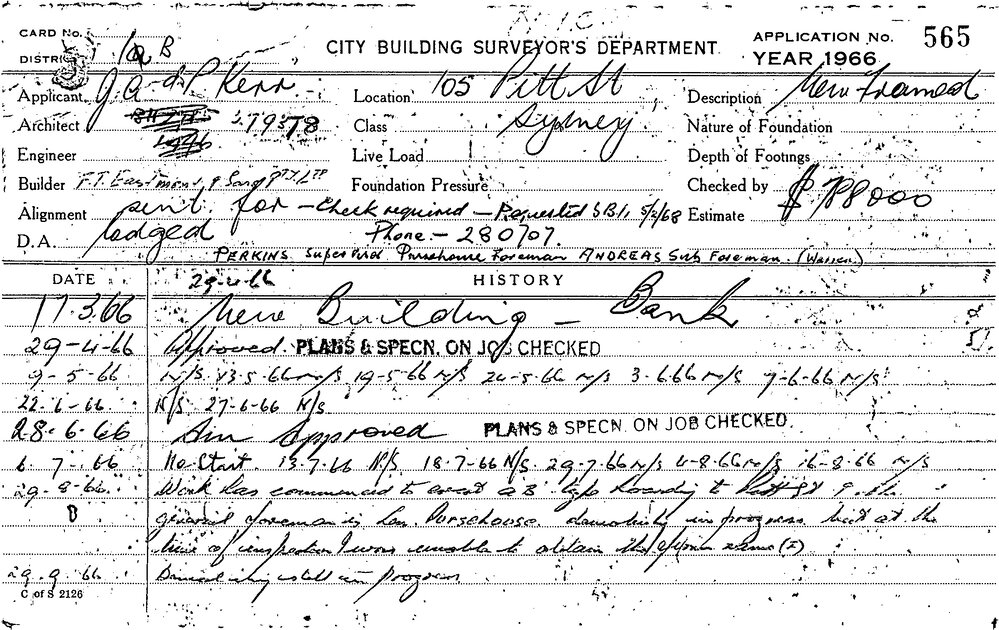 CARD No.
APPLICATION No. 565
CITY BUILDING SURVEYOR'S DEPARTMENT.
DISTRICT B
YEAR 1966
Applicant J. A. & P. Kerr
Location 105 Pitt St
Description New Framed
Architect 37978
Class Sydney
Nature of Foundation
Engineer
Live Load
Depth of Footings
Builder F.T. Eastment & Sons Pty Ltd
Foundation Pressure
Checked by
Alignment sent for - Check required - Requested S.B.1, 5/2/68
Estimate $ 788000
D.A. lodged
Phone - 280707.
PERKINS Super Purshouse Foreman ANDREAS Sub Foreman. (Warren)
DATE 29-4-66 HISTORY
17.3.66 New Building - Bank
29-4-66 Approved. PLANS & SPECN. ON JOB CHECKED
9-5-66 N/S. 13-5-66 N/S 19-5-66 N/S 24-5-66 N/S 3.6.66 N/S 9-6-66 N/S
22-6-66 N/S 27-6-66 N/S
28-6-66 Am approved PLANS & SPECN. ON JOB CHECKED.
6.7.66 No Start. 13.7.66 N/S. 18.7-66 N/S. 29.7.66 N/S 4-8.66 N/S 16-8.66 N/S
29.8.66 Work has commenced to erect a B type hoarding to Pitt St & the
general foreman is Purshouse demolishing in progress but at the
time of inspection I was unable to obtain the name
29.9.66 Demolishing still in progress
C of S 2126